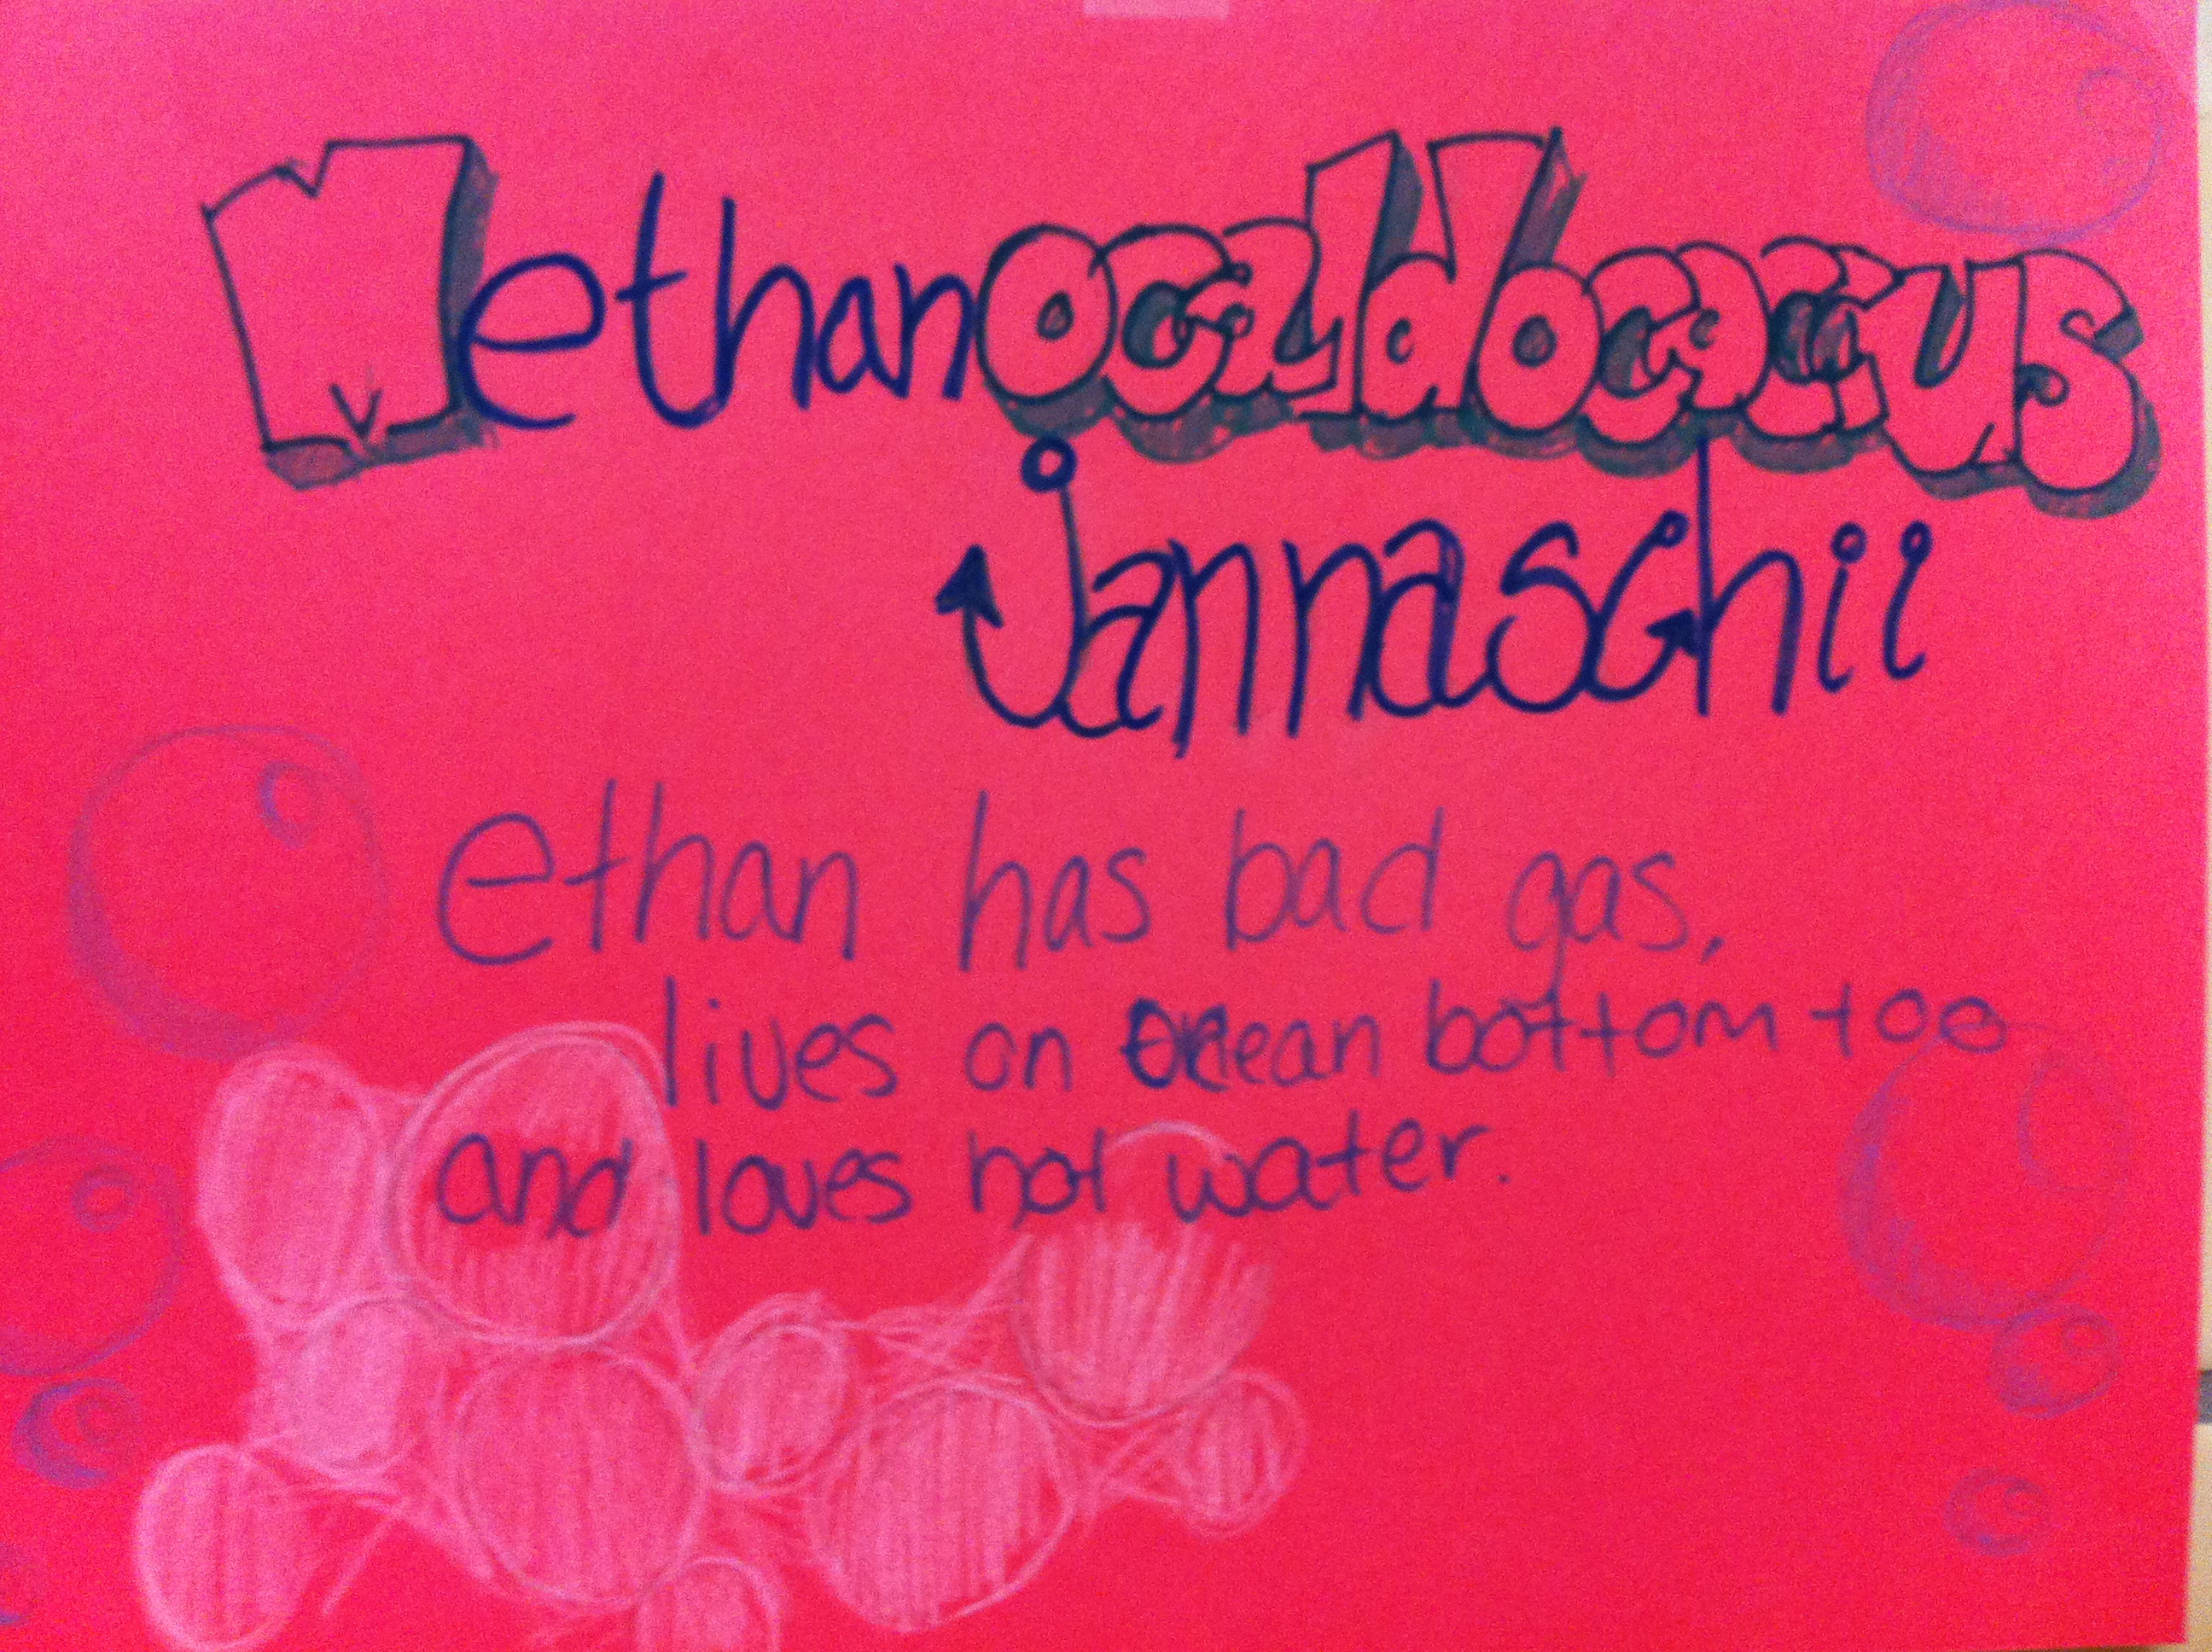 Methanocaldocaccus
jannaschii
ethan has bad gas,
lives on Ocean bottom too
and loves hot water.